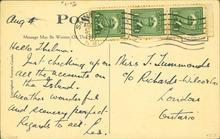 Aug 4
POS
Message May Be Written On This
Hello Thelma.
Just checking up on
all the accounts on
the Island.
Weather wonderful
and scenery perfect.
Regards to all.
Les.
Miss T. Simmonds
c/o Richards-Wilcox Co
London
Ontario